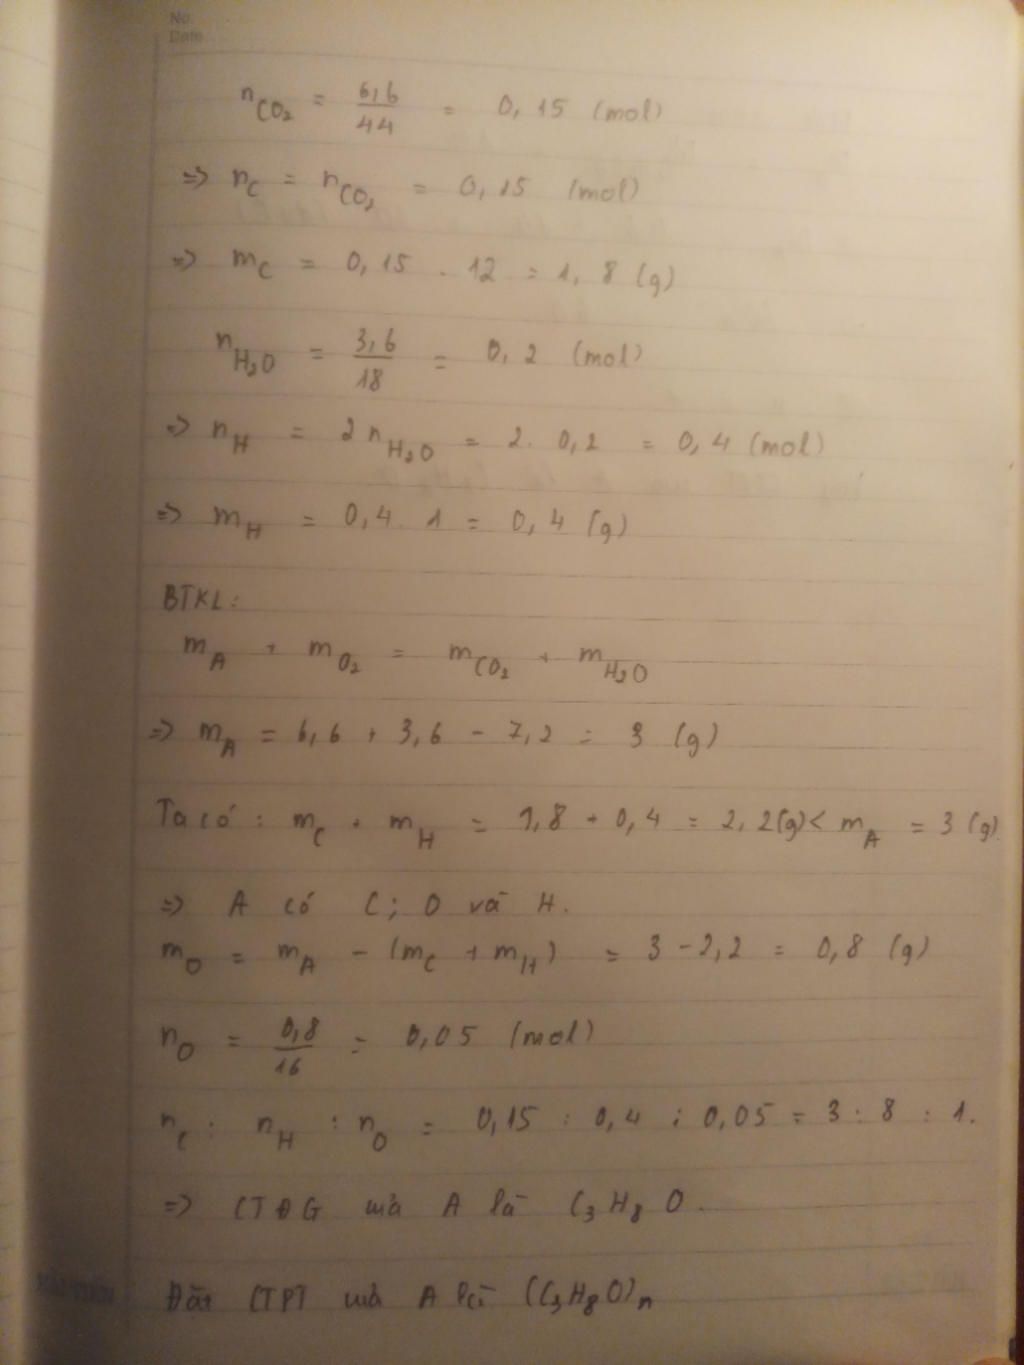 No.
Date
n_CO₂ = 6,6/44 = 0,15 (mol)
=> n_C = n_CO₂ = 0,15 (mol)
=> m_C = 0,15 . 12 = 1,8 (g)
n_H₂O = 3,6/18 = 0,2 (mol)
=> n_H = 2 n_H₂O = 2. 0,2 = 0,4 (mol)
=> m_H = 0,4. 1 = 0,4 (g)
BTKL:
m_A + m_O₂ = m_CO₂ + m_H₂O
=> m_A = 6,6 + 3,6 - 7,2 = 3 (g)
Ta có : m_C + m_H = 1,8 + 0,4 = 2,2(g) < m_A = 3 (g).
=> A có C; O và H.
m_O = m_A - (m_C + m_H) = 3 - 2,2 = 0,8 (g)
n_O = 0,8/16 = 0,05 (mol)
n_C : n_H : n_O = 0,15 : 0,4 : 0,05 = 3 : 8 : 1.
=> CTĐG của A là C₃H₈O.
Đặt CTPT của A là (C₃H₈O)n